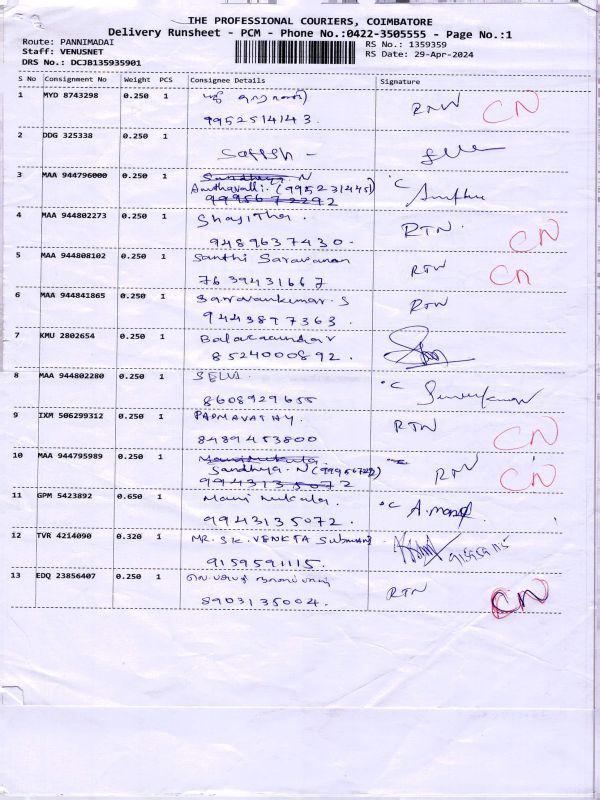 THE PROFESSIONAL COURIERS, COIMBATORE
Delivery Runsheet - PCM - Phone No.:0422-3505555 - Page No.:1
Route: PANNIMADAI
RS No.: 1359359
Staff: VENUSNET
RS Date: 29-Apr-2024
DRS No.: DCJB135935901
S No Consignment No Weight PCS Consignee Details Signature
1 MYD 8743298 0.250 1
RTN CN
9952514143.
2 DDG 325338 0.250 1
Satish -
3 MAA 944796000 0.250 1 Sandhya. N
Amthavalli. (9952314451)
9995672292
4 MAA 944802273 0.250 1 Shajitha.
RTN. CN
9489637430.
5 MAA 944808102 0.250 1 Santhi Saravanan
RTN CN
7639431667
6 MAA 944841865 0.250 1 Saravankumar. S
RTN
9443897363.
7 KMU 2802654 0.250 1 Balachandar
8524000892.
8 MAA 944802280 0.250 1 SELVI
8608929655
9 IXM 506299312 0.250 1 PADMAVATHY.
RTN CN
8489453800
10 MAA 944795989 0.250 1
Sandhya. N
RTN CN
9943135072
11 GPM 5423892 0.650 1 Mani Mekala.
A. Mani
9943135072.
12 TVR 4214090 0.320 1 MR. S.K. VENKTA Submani
9159591115.
13 EDQ 23856407 0.250 1
RTN CN
8903135004.